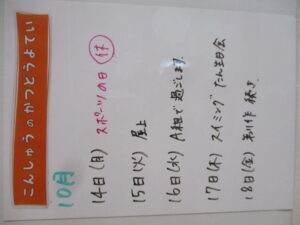 こんしゅうのかつどうよてい
10月
14日(月) スポーツの日 休
15日(火) 屋上
16日(水) 室内で過ごします
17日(木) スイミング たん生日会
18日(金) 製作